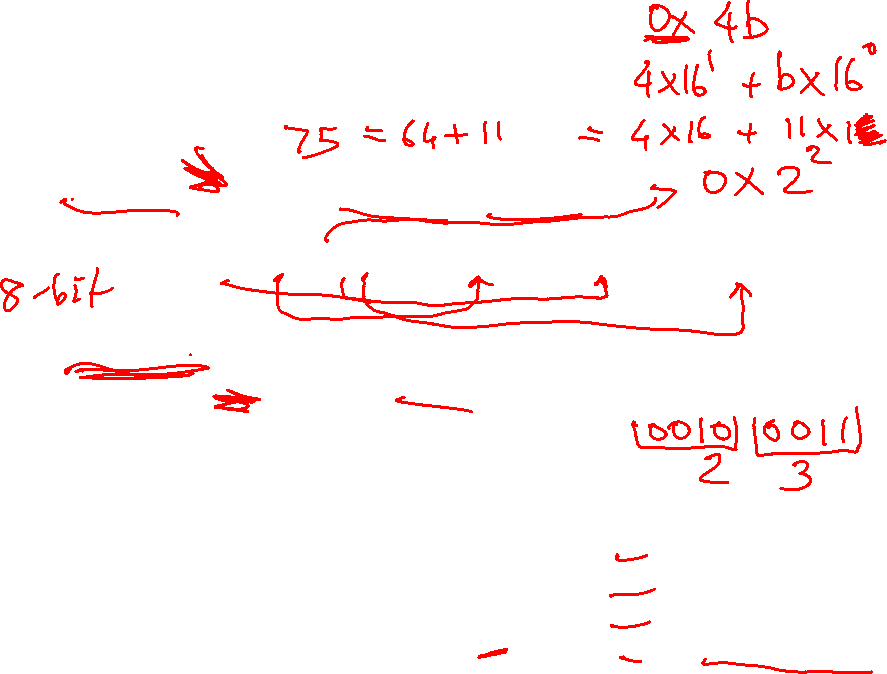 0x 4b
4x16¹ + bx16⁰
75 = 64+11 = 4x16 + 11x1
0x2²
8-bit
0010 0011
2 3